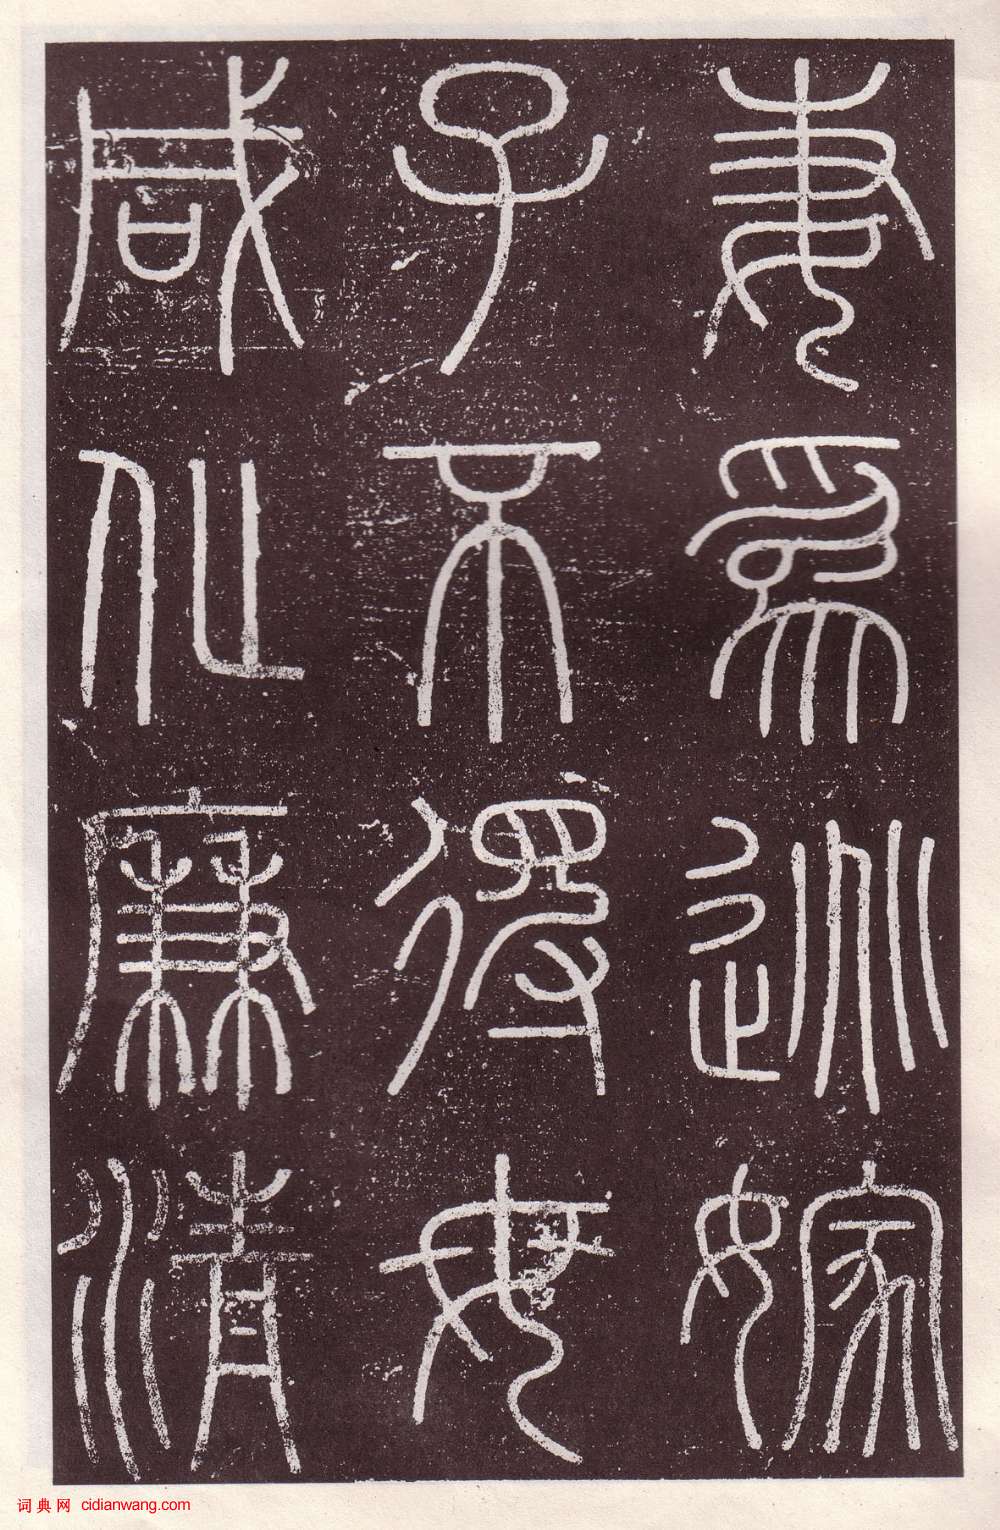 妻爲逃嫁
子不得母
咸化廉清
词典网 cidianwang.com